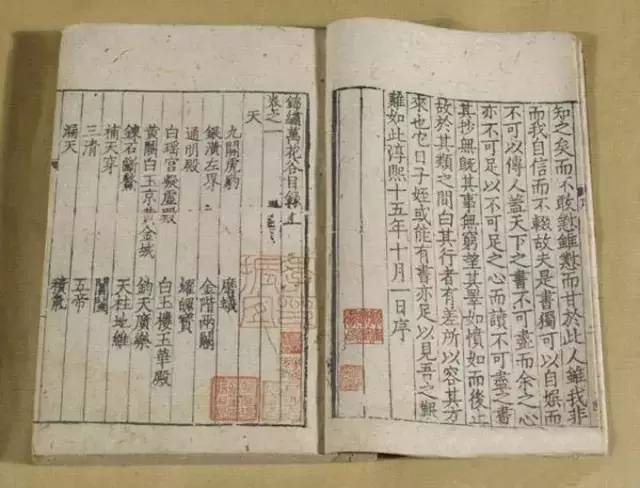 知之矣而不敢愆雖愆而甘於此人雖我非
而我自信而不輟故夫是書獨可以自娛而
不可以傳人蓋天下之書不可盡而余之心
亦不可足以不可足之心而讀不可盡之書
其抄無旣其事無窮其如憤如而後止
故於其類之間白其行者有差所以容其方
來也它日子姪或能有書亦足以見吾之艱
難如此淳熙十五年十月一日序
錦繡萬花谷目錄上
卷之一
天
九關虎豹 磨蟻
銀潢左界 金階兩闕
通明殿 耀魄寶
白瑤宮凝虛殿 白玉樓玉華殿
黃闕白玉京黃金城 鈞天廣樂
鍊石斷鰲 天柱地維
補天穿 閶闔
三清 五帝
漏天 積氣